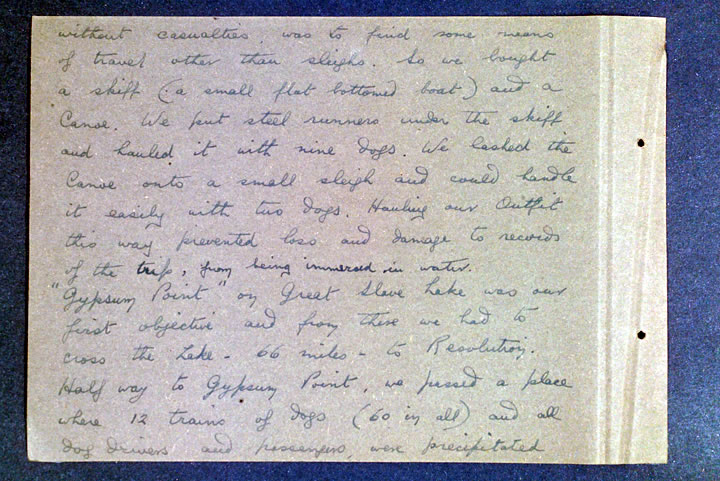 without casualties, was to find some means
of travel other than sleighs. So we bought
a skiff (a small flat bottomed boat) and a
Canoe. We put steel runners under the skiff
and hauled it with nine dogs. We lashed the
Canoe onto a small sleigh and could handle
it easily with two dogs. Hauling our Outfit
this way prevented loss and damage to records
of the trip, from being immersed in water.
"Gypsum Point" on Great Slave Lake was our
first objective and from there we had to
cross the Lake - 66 miles - to Resolution.
Half way to Gypsum Point, we passed a place
where 12 trains of dogs (60 in all) and all
dog drivers and passengers, were precipitated